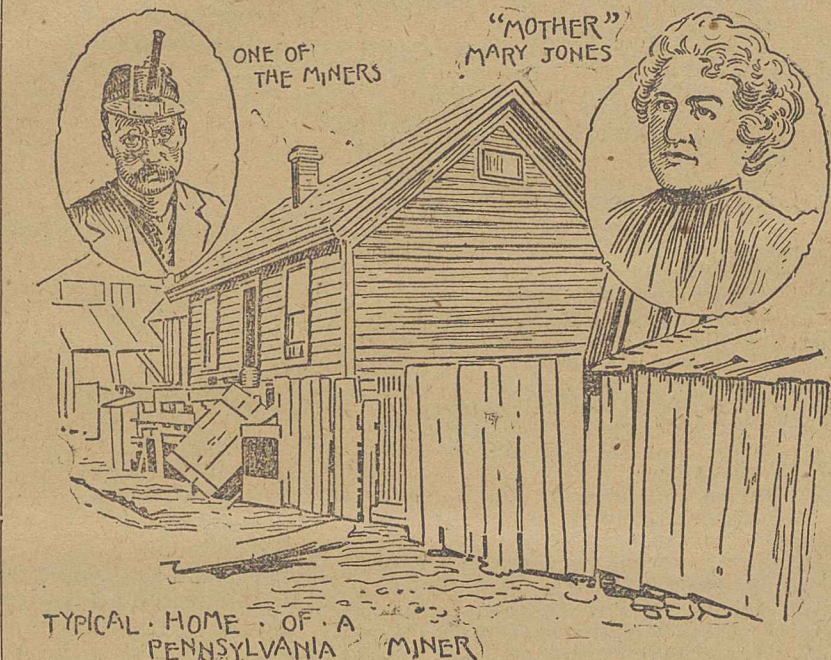 ONE OF
THE MINERS
"MOTHER"
MARY JONES
TYPICAL · HOME · OF · A
PENNSYLVANIA MINER